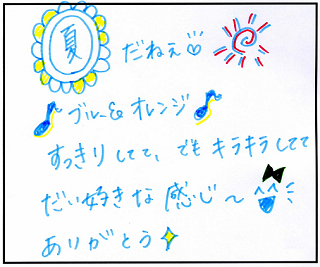 夏だねぇ♡
ブルー&オレンジ
すっきりしてて、でもキラキラしてて
だい好きな感じ〜
ありがとう